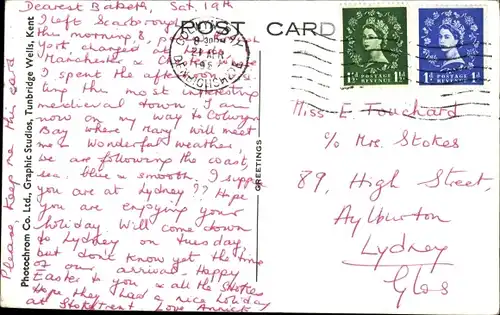 POST CARD
Dearest Baketh, Sat, 19th
I left Scarborough
this morning &
York, changed at
Manchester & Chester
I spent the
this most interesting
medieval town. I am
now on my way to Colwyn
Bay where Mary will meet
me. Wonderful weather,
we are following the coast,
sea blue & smooth. I suppose
you are at Lydney?? Hope
you are enjoying your
holiday. Will come down
to Lydney on Tuesday,
but don't know yet the time
of our arrival. Happy
Easter to you & all the Stokes
Hope they had a nice holiday
at Love Annick
Please, keep me this card
Photochrom Co. Ltd., Graphic Studios, Tunbridge Wells, Kent
GREETINGS
COLWYN BAY
21 APR
DENBIGHSHIRE
POSTAGE
REVENUE
1½D
POSTAGE
REVENUE
1D
Miss E. Touchard
c/o Mrs. Stokes
89, High Street,
Aylburton
Lydney
Glos